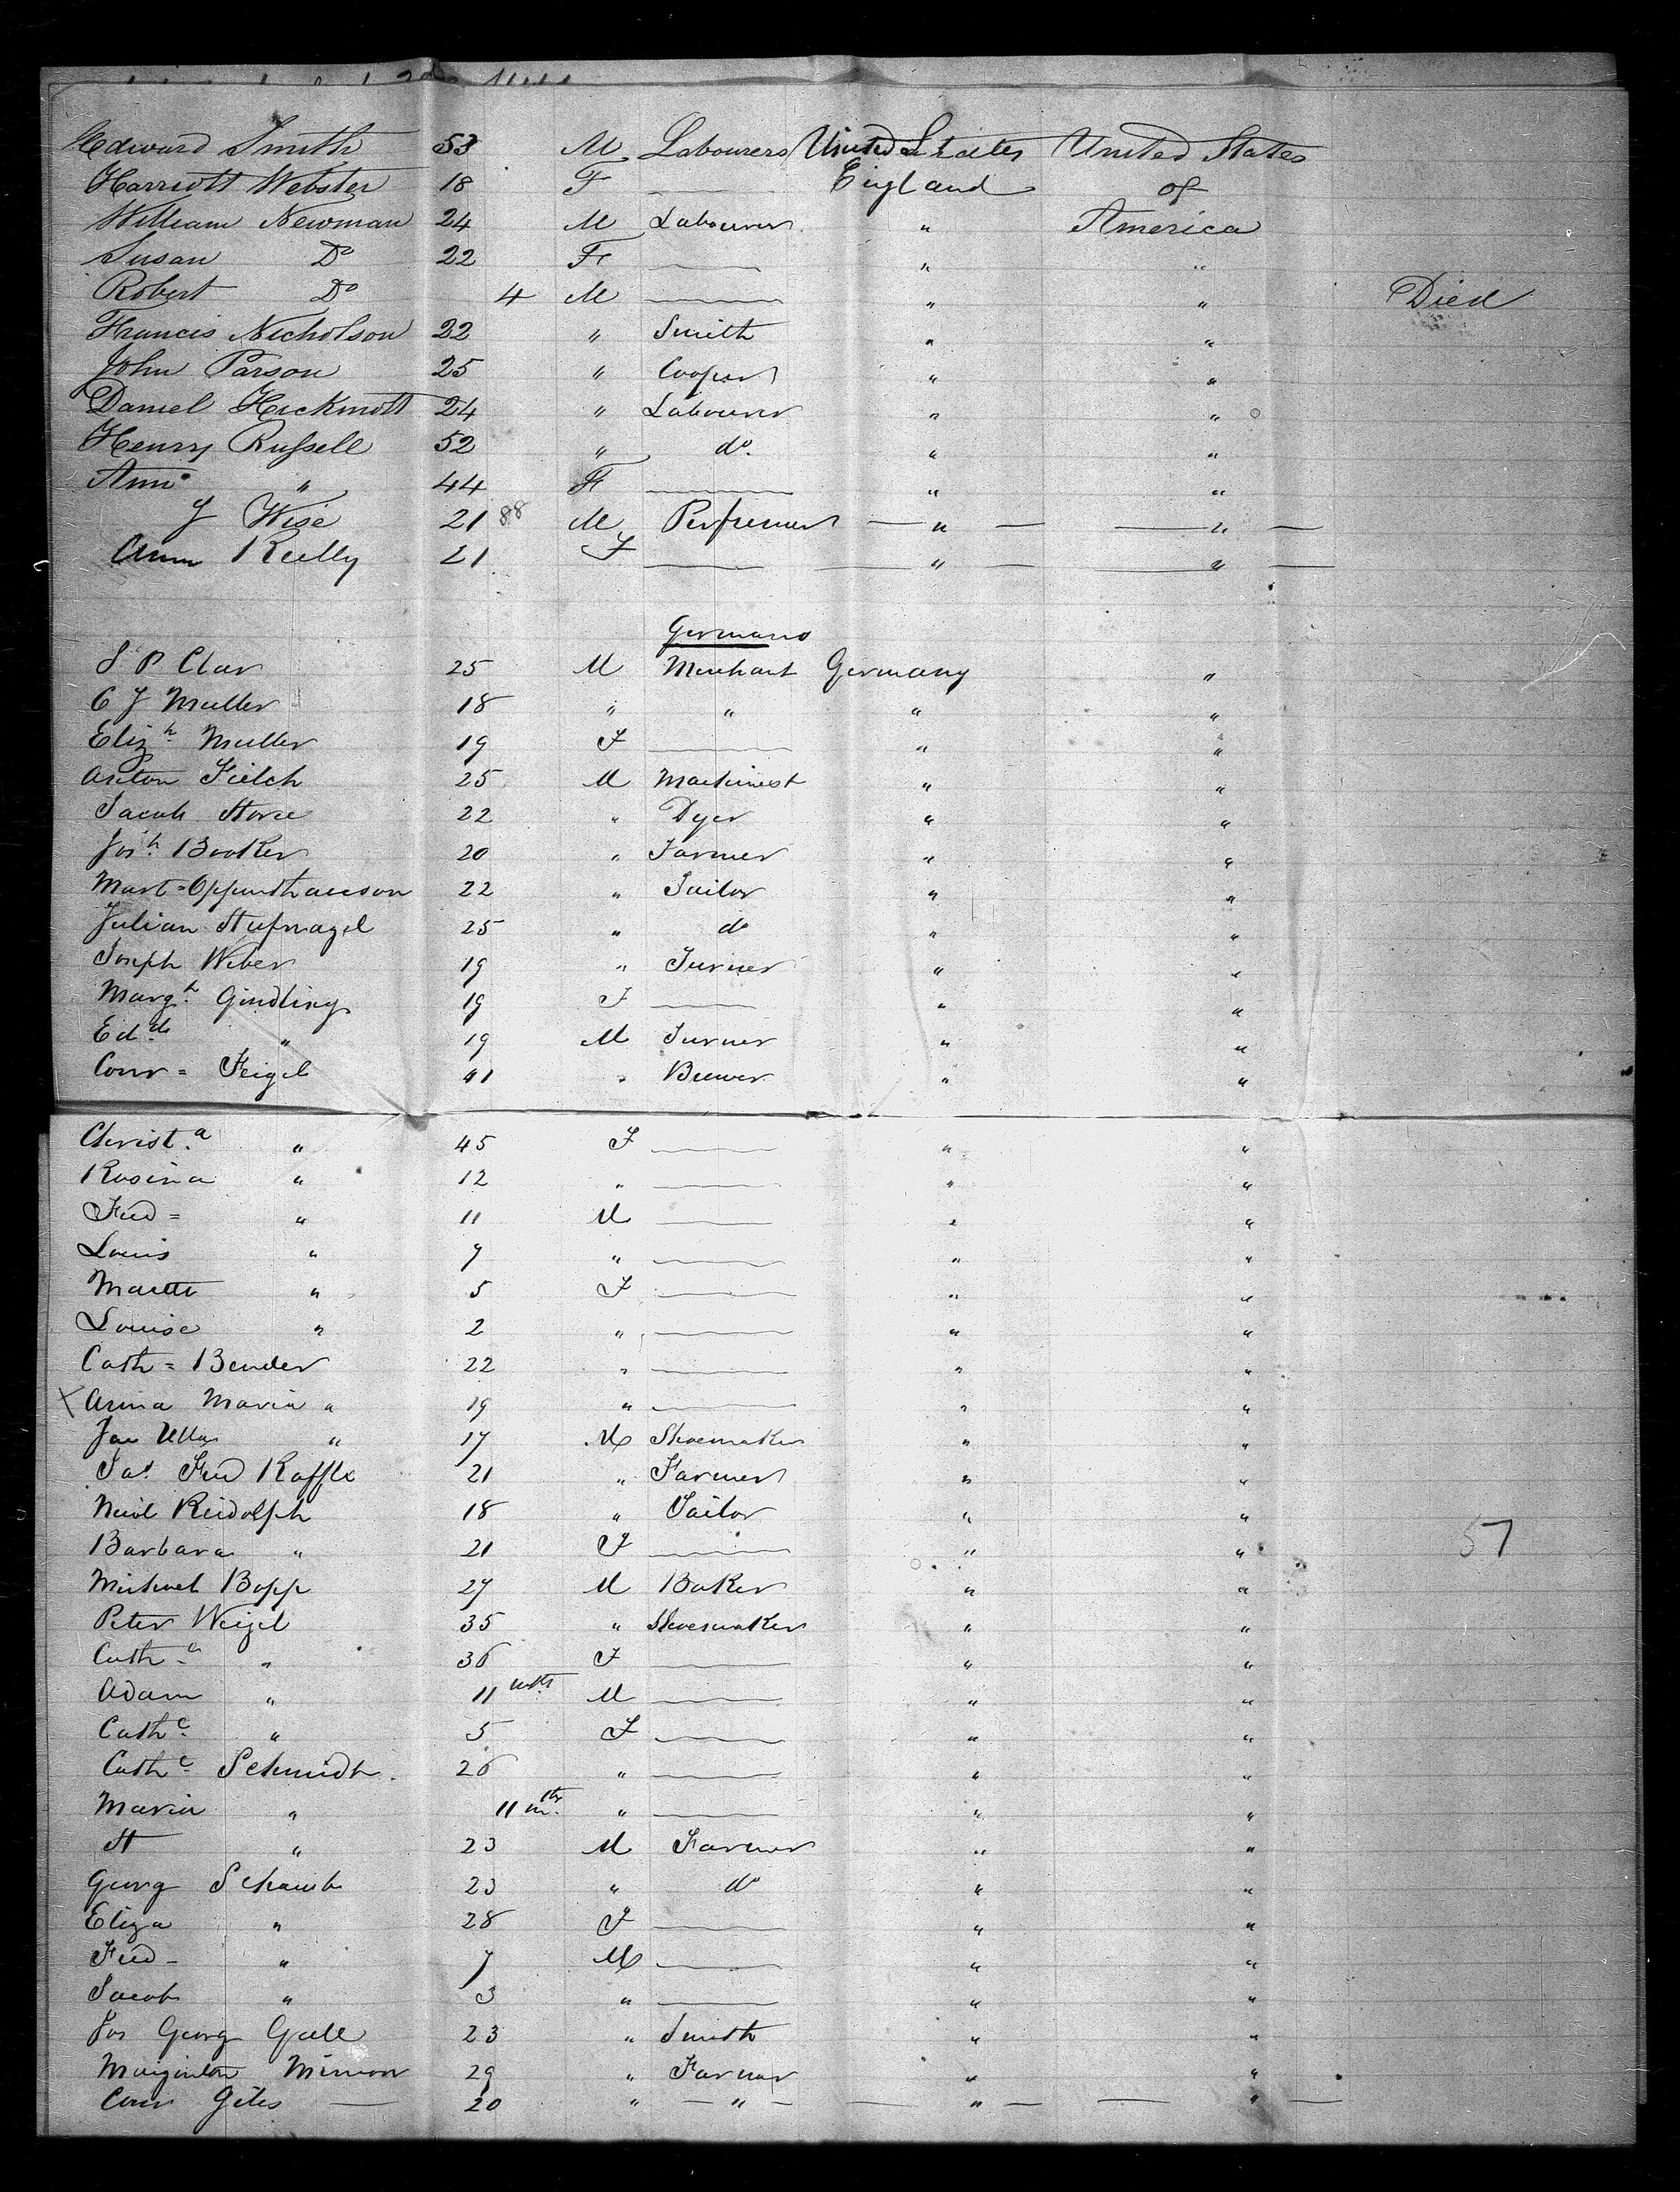 Edward Smith 53 M Labourers United States United States
Harriott Webster 18 F England of
William Newman 24 M Labourer " America
Susan Do 22 F " "
Robert Do 4 M " " Died
Francis Nicholson 22 " Smith " "
John Parson 25 " Cooper " "
Daniel Hickmott 24 " Labourer " "
Henry Russell 52 " do. " "
Ann " 44 F " "
J Wise 21 88 M Perfumer " "
Ann Reilly 21 F " "
Germans
S P Clar 25 M Merchant Germany "
C J Muller 18 " " " "
Elizh Muller 19 F " "
Anton 25 M Machinest " "
Jacob 22 " Dyer " "
Josh Booker 20 " Farmer " "
Mart = Oppenthauson 22 " Tailor " "
Julian Stufnagel 25 " do " "
Joseph Weber 19 " Turner " "
Margt Gindling 19 F " "
Edd " 19 M Turner " "
Conr = Feigel 41 " Brewer " "
Christ.a " 45 F " "
Rosina " 12 " " "
Fred = " 11 M " "
Louis " 9 " " "
" 5 F " "
Louise " 2 " " "
Cath = Bender 22 " " "
X Anna Maria " 19 " " "
" 17 M Shoemaker " "
Fred 21 " Farmer " "
Reidolph 18 " Tailor " "
Barbara " 21 F " " 57
Michael Bopp 27 M Baker " "
Peter Weizel 35 " Shoemaker " "
Cath " 36 F " "
Adam " 11 mths M " "
Cathe " 5 F " "
Cathe Schmidt 26 " " "
Maria " 11 mth " " "
St " 23 M Farmer " "
Georg Schaub 23 " do " "
Eliza " 28 F " "
Fred - " 7 M " "
Jacob " 3 " " "
Jos Georg Gall 23 " Smith " "
29 " Farmer " "
Conr Giles 20 " " " "